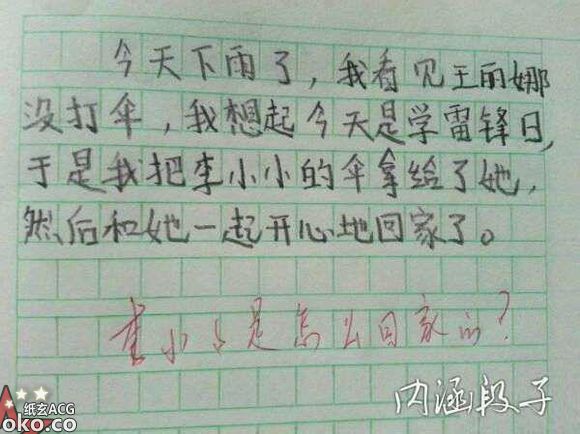 今天下雨了，我看见王丽娜
没打伞，我想起今天是学雷锋日，
于是我把李小小的伞拿给了她，
然后和她一起开心地回家了。
李小小是怎么回家的？
内涵段子
纸玄ACG
oko.co